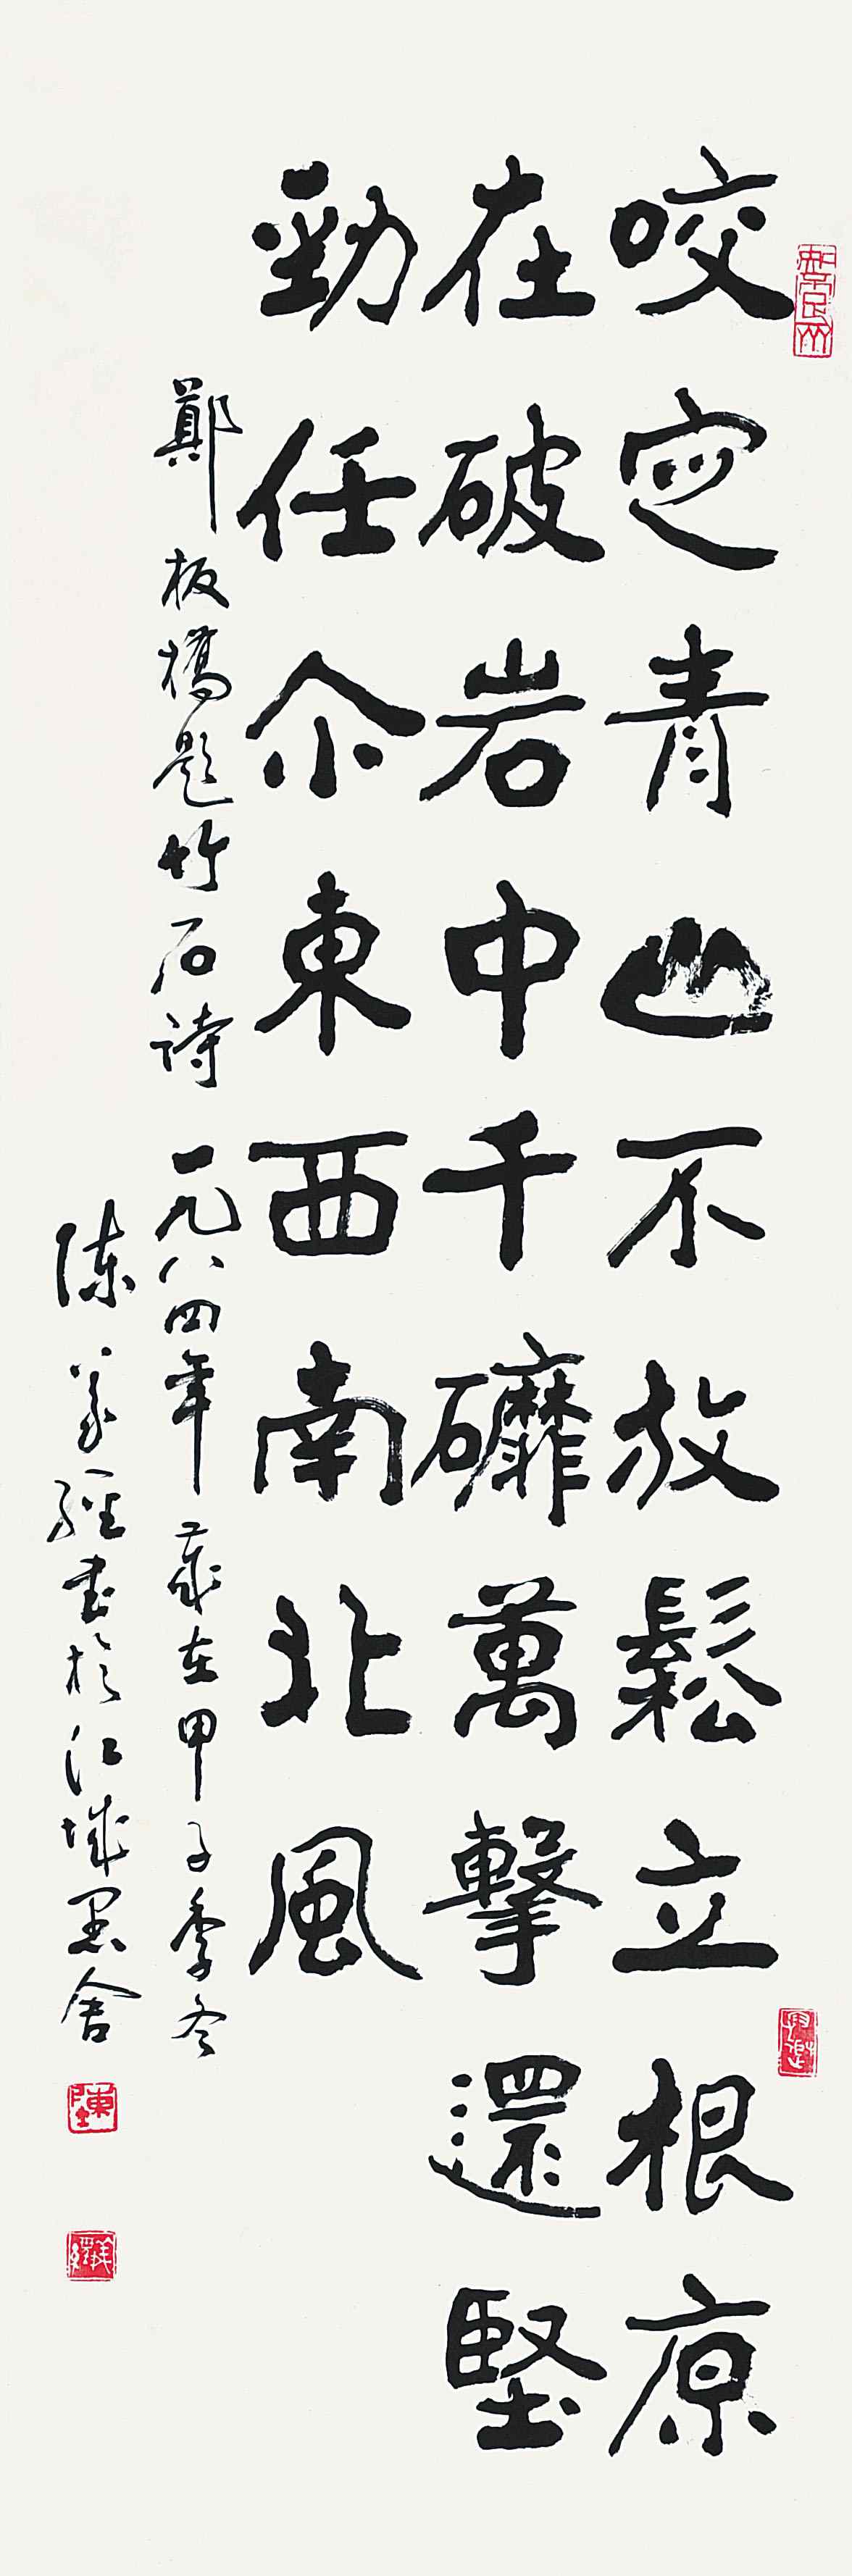 咬定青山不放鬆立根原
在破岩中千䃺萬擊還堅
勁任尒東西南北風
鄭板橋題竹石詩 一九八四年歲在甲子季冬
陳義經書於江城墨舍